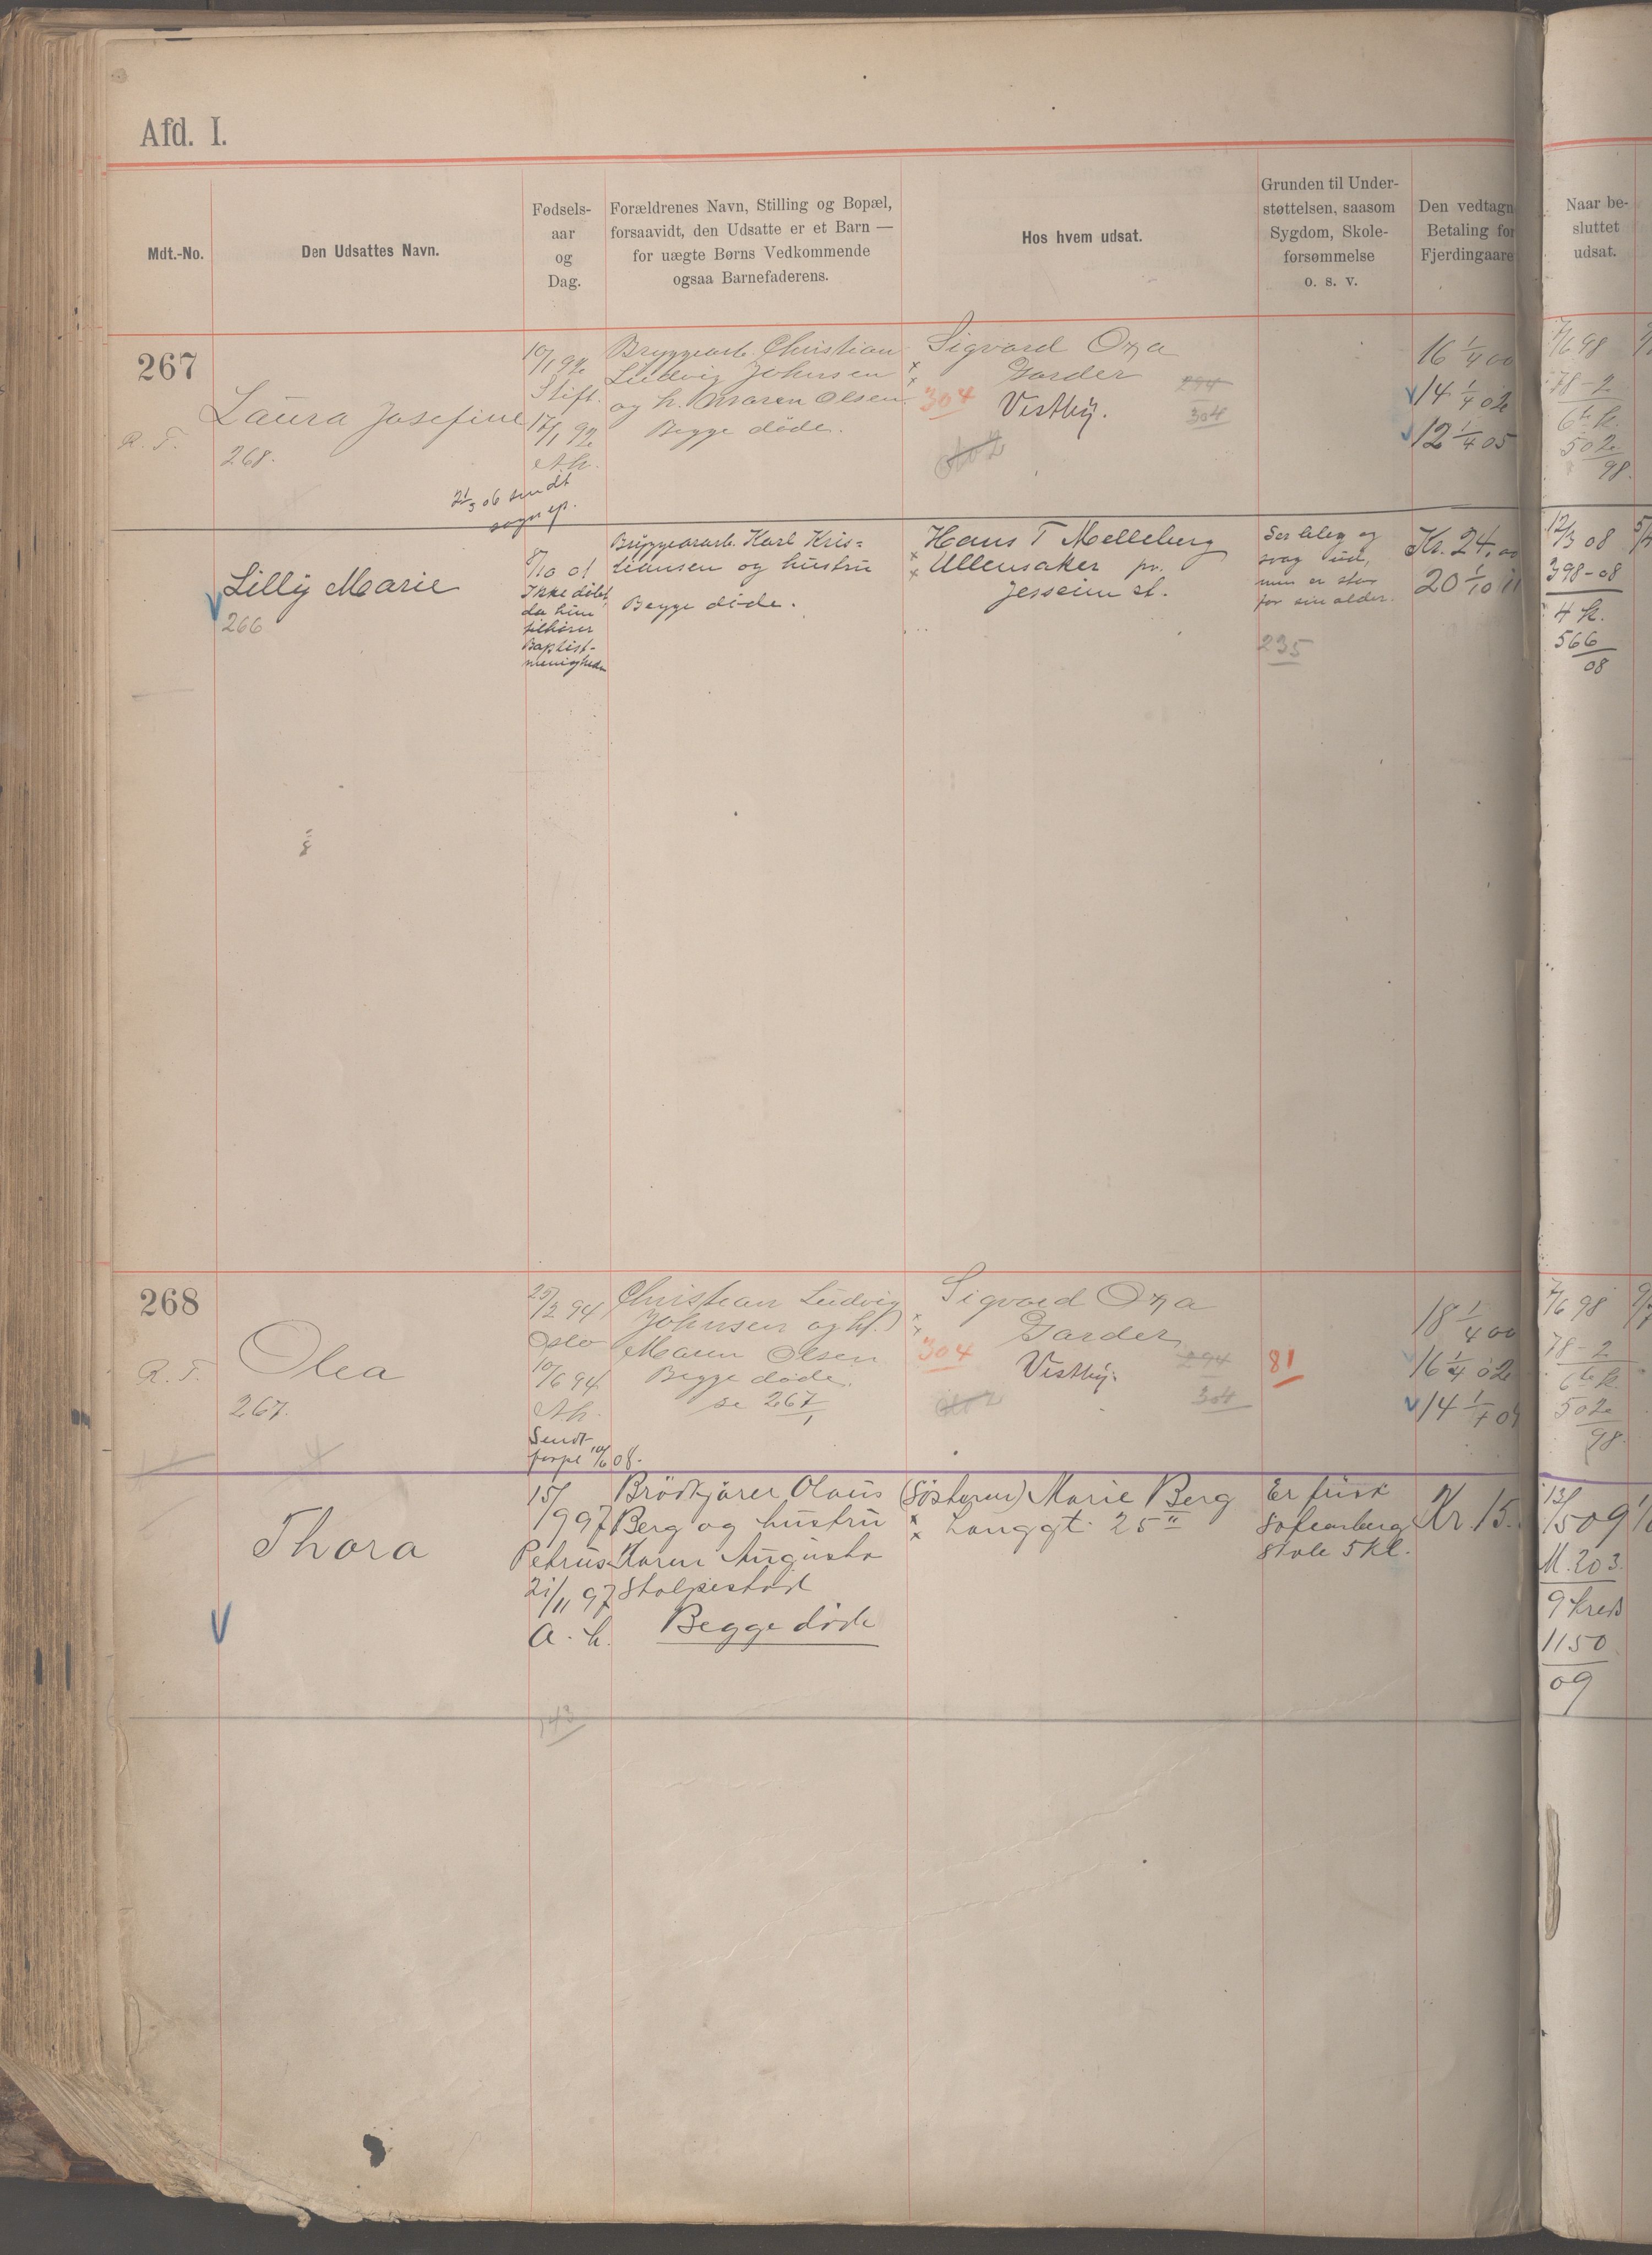 Afd. I.
Mdt.-No.
Den Udsattes Navn.
Fødsels-
aar
og
Dag.
Forældrenes Navn, Stilling og Bopæl,
forsaavidt, den Udsatte er et Barn —
for uægte Børns Vedkommende
ogsaa Barnefaderens.
Hos hvem udsat.
Grunden til Under-
støttelsen, saasom
Sygdom, Skole-
forsømmelse
o. s. v.
Den vedtagn
Betaling for
Fjerdingaare
Naar be-
sluttet
udsat.
267
R. T.
Laura Josefine
268.
10/1 92
Stift.
17/1 92
Ah.
21/3 06 sendt
Bryggearb. Christian
Ludvig Johnsen
og h. Maren Olsen.
Begge døde.
Sigvard Oza
Garder
304 Vestby.
294
304
16 1/4 00
14 1/4 02
12 1/4 05
7/6 98
78-2
6te k.
502
98.
Lilly Marie
266
8/10 01
Ikke døbt,
da hun
tilhører
Baptist-
menigheden
Bryggeararb. Karl Kris=
tiansen og hustru
Begge døde.
Hans T Melleberg
Ullensaker pr.
Jesseim st.
Ser bleg og
svag ud,
men er stor
for sin alder.
235
Kr. 24,00
20 1/10 11
12/3 08
398-08
4 k.
566
08
268
R. T.
Olea
267.
25/2 94
Oslo
10/6 94
Ah.
Sendt
forpl 10/6 08.
Christian Ludvig
Johnsen og h.
Maren Olsen
Begge døde.
se 267/1
Sigvard Oza
Garder
304
Vestby.
294
304
81
18 1/4 00
16 1/4 02
14 1/4 0
7/6 98
78-2
6te k.
502
98.
Thora
15/9 97
Petrus
21/11 97
A. h.
143
Brödkjører Olaus
Berg og hustru
Karen Augusta
Stolpestad
Begge døde
(Søsteren) Marie Berg
Langgt. 25 II
Er frisk
Sofienberg
Skole 5 kl.
Kr. 15.
13/5 09
M. 203.
9 kreds
1150
09